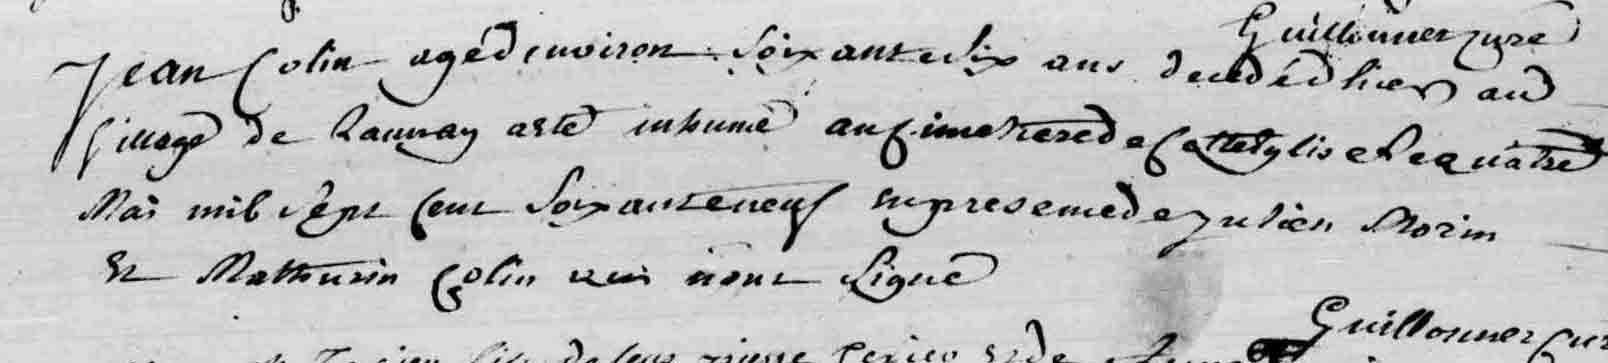 Guillonner curé
Jean Colin agé denviron soixante six ans decedé d hier au
village de Launay a eté inhumé au simetiere de cette eglise le quatre
Mai mil sept cent soixante neuf en presence de Julien Morin
Et Mathurin Colin qui nont signé
Guillonner cur
fils de